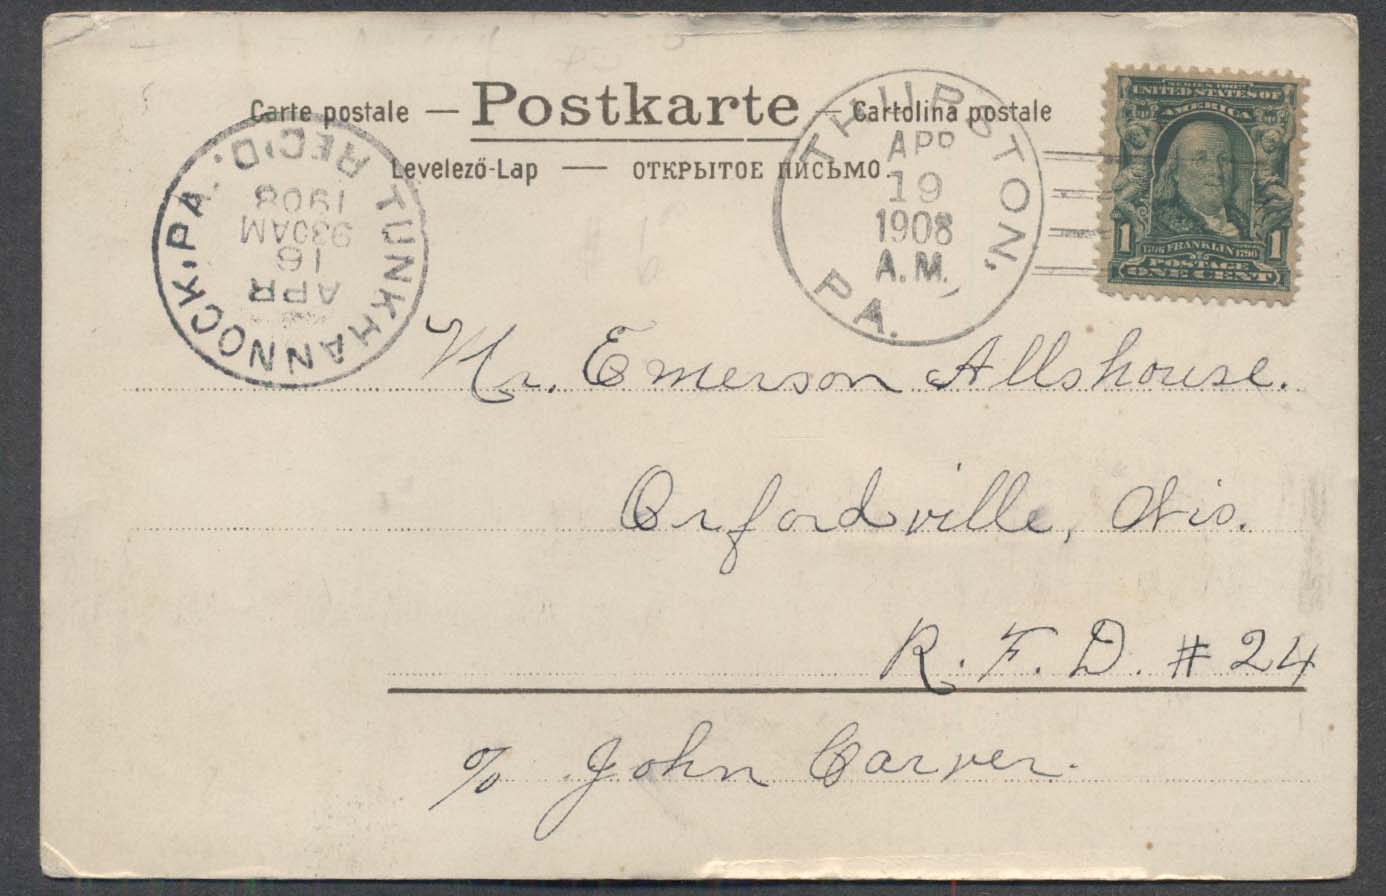 Carte postale — Postkarte — Cartolina postale
Levelező-Lap — ОТКРЫТОЕ ПИСЬМО.
THURSTON, PA.
APR
19
1908
A.M.
UNITED STATES OF
AMERICA
1 1706 FRANKLIN 1790 1
POSTAGE
ONE CENT
TUNKHANNOCK, PA. REC'D.
APR
16
930AM
1908
Mr. Emerson Allshouse.
Orfordville, Wis.
R. F. D. # 24
% John Carver.